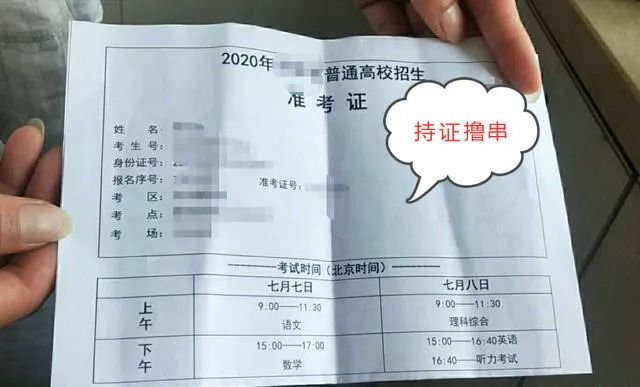 2020年 普通高校招生
准考证
持证撸串
姓 名
考生号:
身份证号:
报名序号:
准考证号:
考 区
考 点
考 场
考试时间(北京时间)
七月七日 七月八日
上午 9:00——11:30 9:00——11:30
语文 理科综合
下午 15:00——17:00 15:00——16:40英语
数学 16:40——听力考试